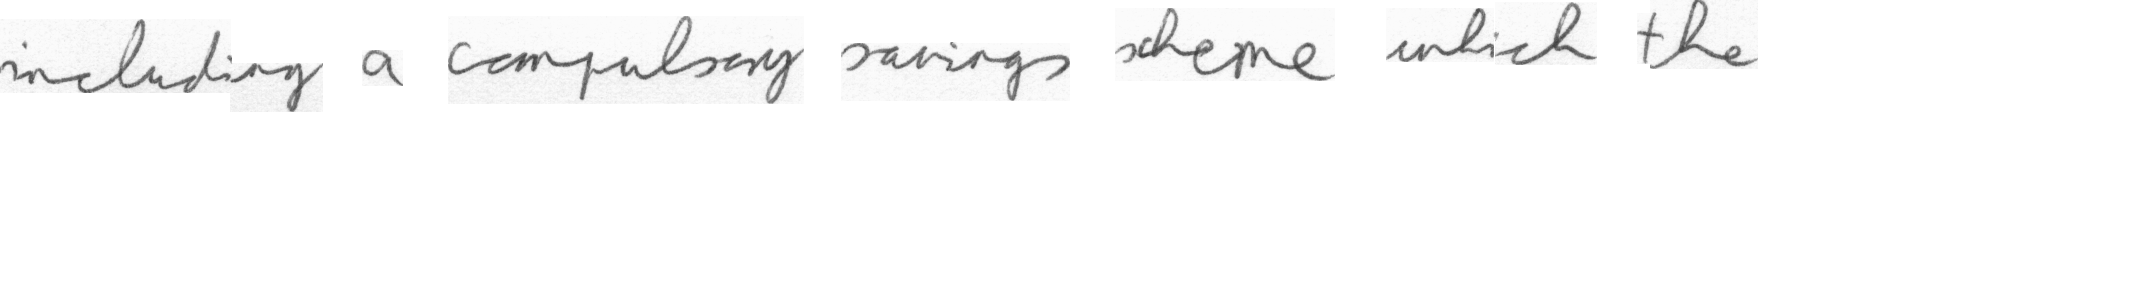 including a compulsory savings scheme which the